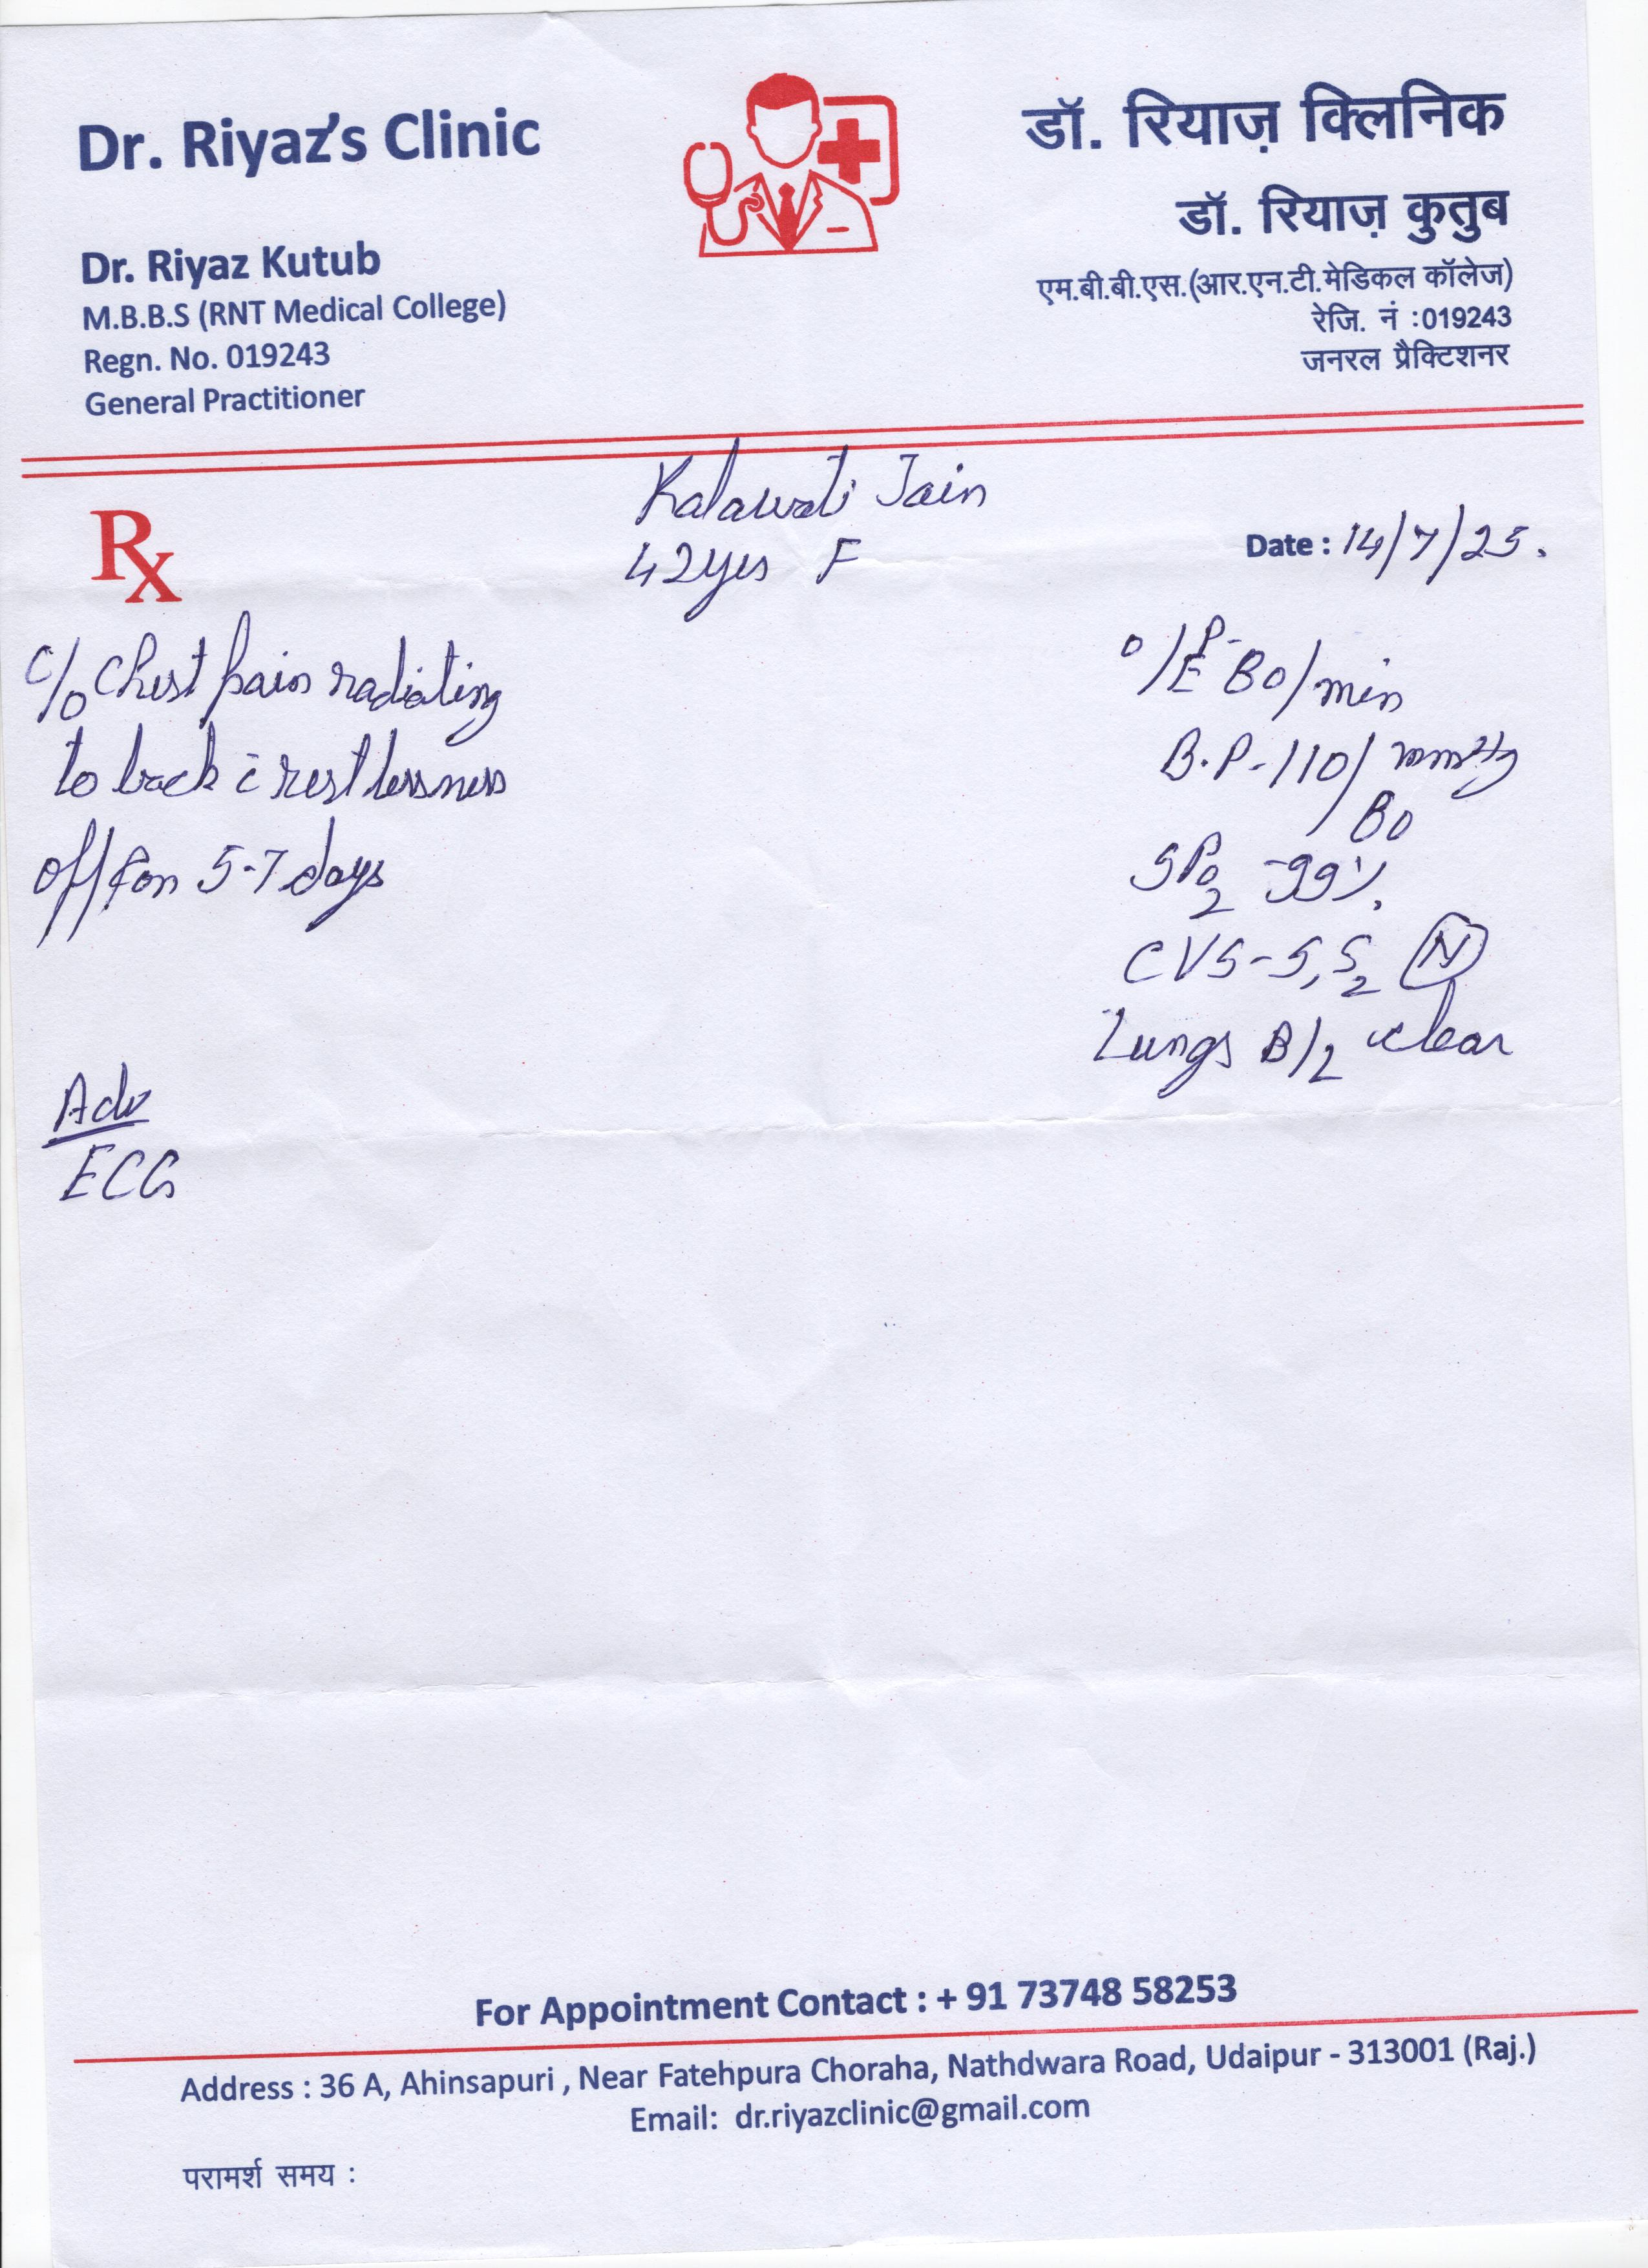 Dr. Riyaz's Clinic
Dr. Riyaz Kutub
M.B.B.S (RNT Medical College)
Regn. No. 019243
General Practitioner
डॉ. रियाज़ क्लिनिक
डॉ. रियाज़ कुतुब
एम.बी.बी.एस.(आर.एन.टी.मेडिकल कॉलेज)
रेजि. नं :019243
जनरल प्रैक्टिशनर
Kalawati Jain
42yrs F
Rx
Date : 14/7/25.
c/o Chest pain radiating
to back c̄ restlessness
off/on 5-7 days
o/E P- 80/min
B.P-110/80 mmHg
SPO2 -99%.
CVS-S1S2 (N)
Lungs B/L clear
Adv
ECG
For Appointment Contact : + 91 73748 58253
Address : 36 A, Ahinsapuri , Near Fatehpura Choraha, Nathdwara Road, Udaipur - 313001 (Raj.)
Email: dr.riyazclinic@gmail.com
परामर्श समय :